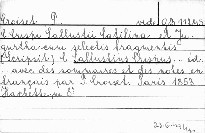 Croiset P. vide OB.12845
C. Crispi Sallustii Catilina et Ju-
gurtha cum selectis fragmentis
(Scripsit) C. Sallustius Crispus.. ed.
avec des sommaires et des notes en
français par P. Croiset. Paris 1853
Hachette